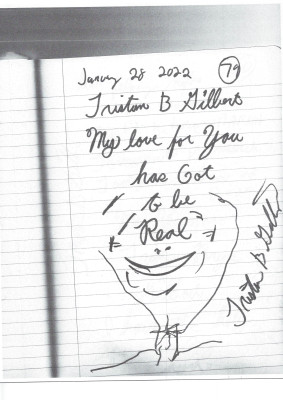 January 28 2022 79
Tristan B Gilbert
"My love for You
has Got
to be
Real"
Tristan B Gilbert